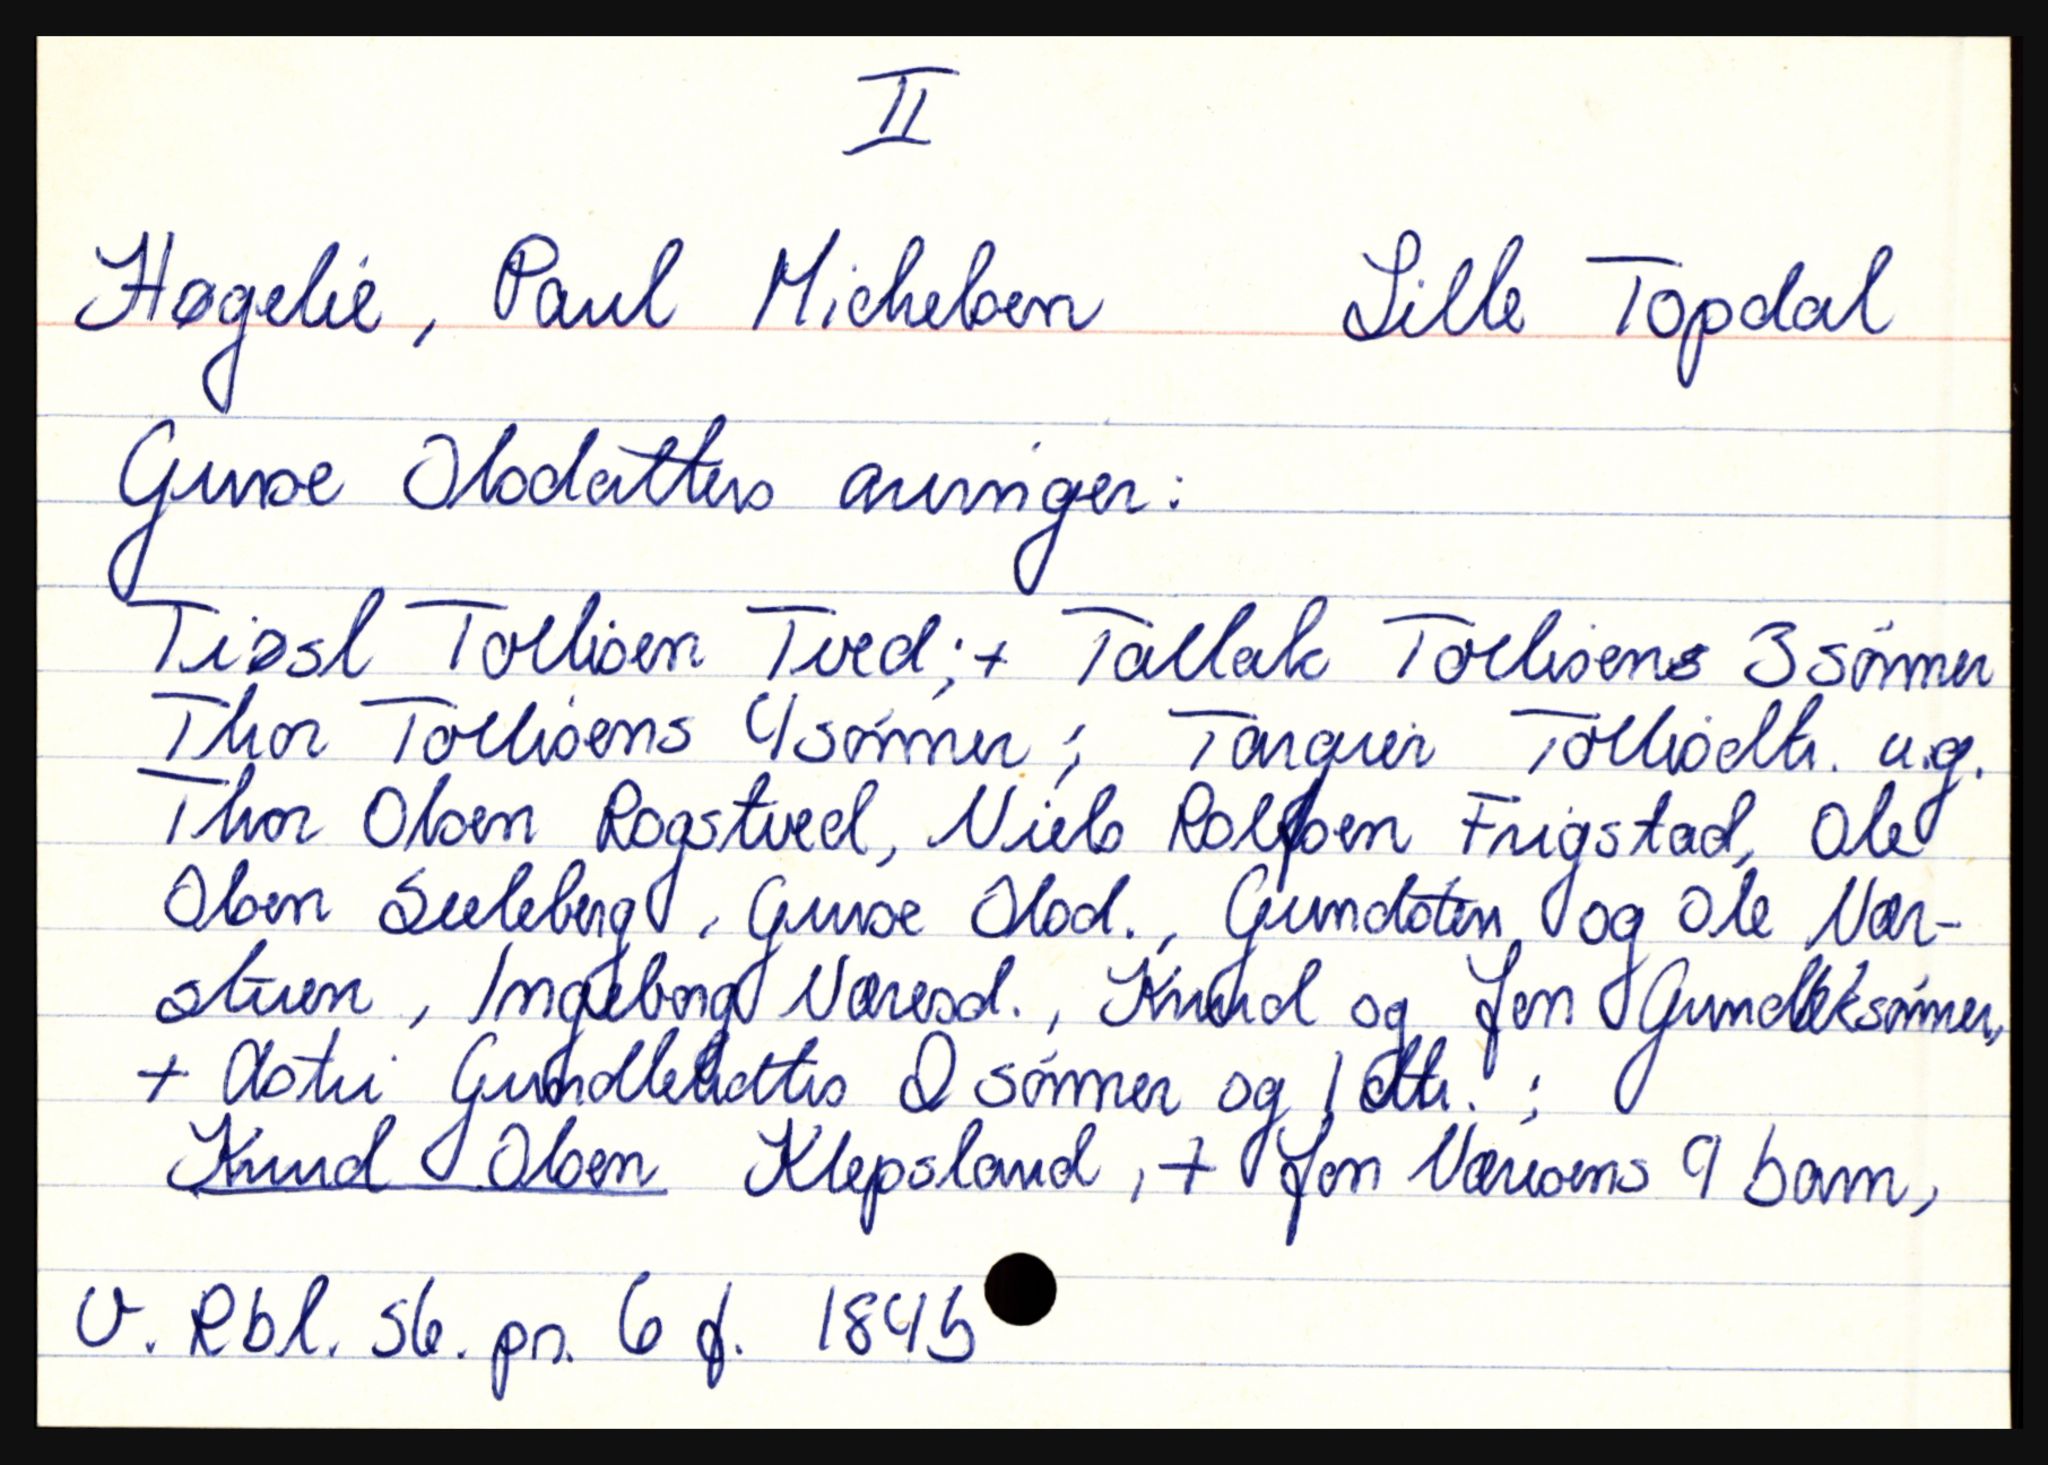 II
Høgelie, Paul Michelsen Lille Topdal
Gunve Olsdatters arvinger:
Tiøsl Tollisen Tved; + Tallak Tollisens 3 sønner
Thor Tollisens 4 sønner; Targier Tollisdtr. u.g.
Thor Olsen Rogstved, Niels Rolfsen Frigstad, Ole
Olsen Seeleberg, Gunvе Olsd., Gundsten og Ole Nær-
stuen, Ingeborg Næresd., Knud og Jon Gundleksønner,
+ Astri Gundlekdtrs 2 sønner og 1 dtr.;
Knud Olsen Klepsland, + Jon Nærisens 9 barn,
V. Rbl. S6. pr. 6 f. 184b